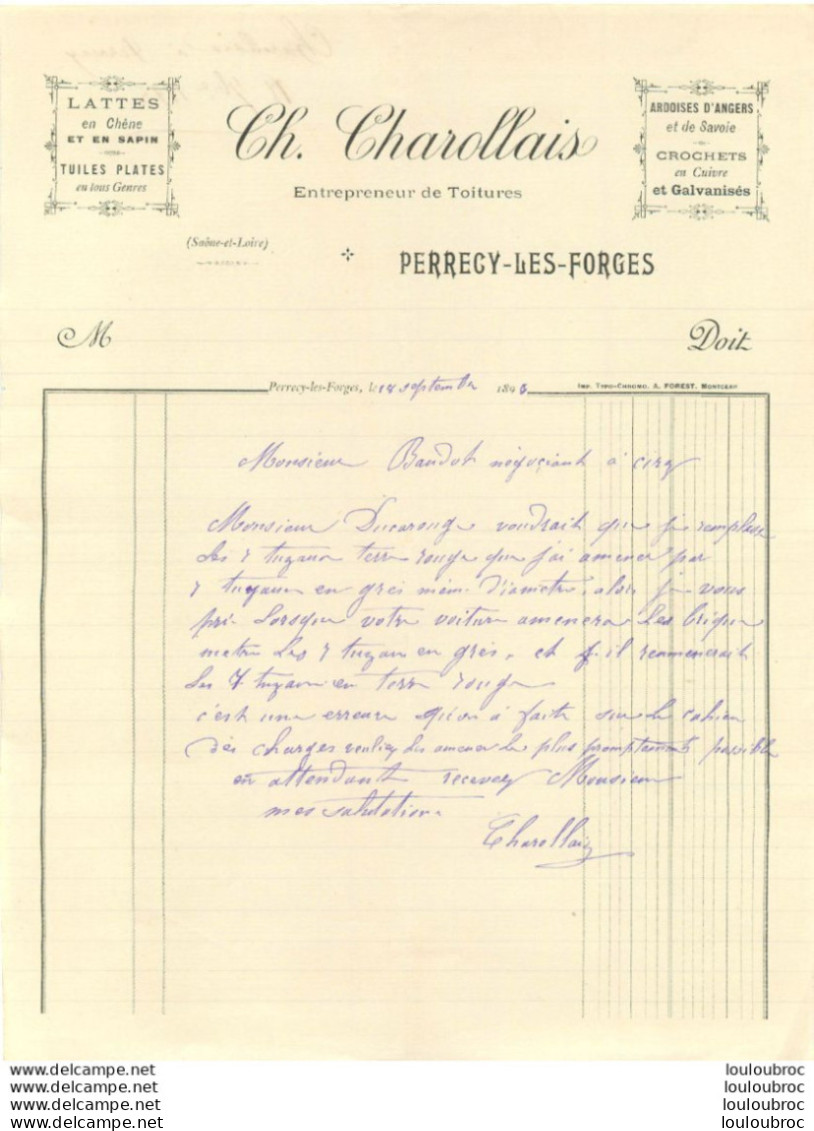 LATTES
en Chêne
ET EN SAPIN
TUILES PLATES
en tous Genres
Ch. Charollais
Entrepreneur de Toitures
ARDOISES D'ANGERS
et de Savoie
CROCHETS
en Cuivre
et Galvanisés
(Saône-et-Loire)
PERRECY-LES-FORGES
M Doit
Perrecy-les-Forges, le 14 septembre 189
Imp. Typo-Chromo. A. FOREST, Montceau
Monsieur Baudot négoçiant à ciry
Monsieur Ducarouge voudrait que je remplase
les 7 tuyaux terre rouge que j'ai amener par
7 tuyaux en grès même diametre, alors je vous
prie lorsque votre voiture amenera les brique
metre les 7 tuyau en grès, et il remenerait
les 7 tuyaux en terre rouge
c'est une erreure qu'on à faite sur le cahier
des charges veuliez les amener le plus promptement possible
en attendant recevez Monsieur
mes salutations
Charollais
www.delcampe.net louloubroc
www.delcampe.net louloubroc
www.delcampe.net louloubroc
www.delcampe.net louloubroc